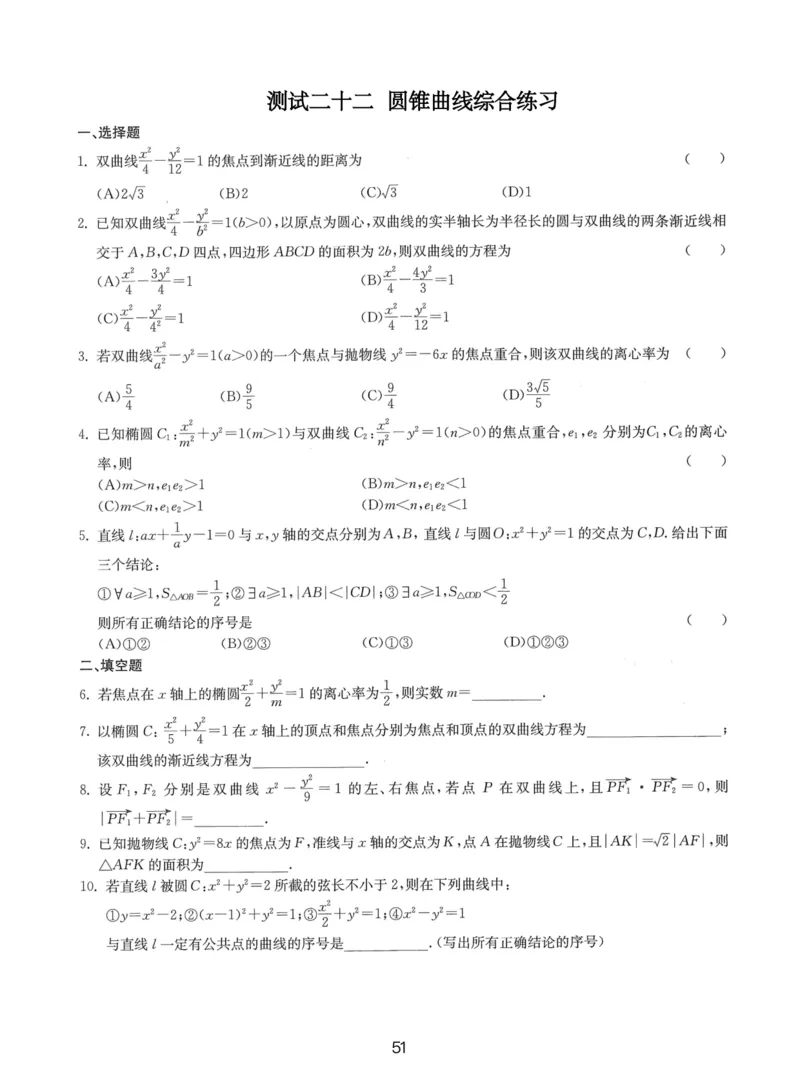 测试二十二 圆锥曲线综合练习
一、选择题
1. 双曲线x²/4-y²/12=1的焦点到渐近线的距离为 ( )
(A)2√3 (B)2 (C)√3 (D)1
2. 已知双曲线x²/4-y²/b²=1(b>0),以原点为圆心,双曲线的实半轴长为半径长的圆与双曲线的两条渐近线相
交于A,B,C,D四点,四边形ABCD的面积为2b,则双曲线的方程为 ( )
(A)x²/4-3y²/4=1 (B)x²/4-4y²/3=1
(C)x²/4-y²/4²=1 (D)x²/4-y²/12=1
3. 若双曲线x²/a²-y²=1(a>0)的一个焦点与抛物线y²=-6x的焦点重合,则该双曲线的离心率为 ( )
(A)5/4 (B)9/5 (C)9/4 (D)3√5/5
4. 已知椭圆C₁:x²/m²+y²=1(m>1)与双曲线C₂:x²/n²-y²=1(n>0)的焦点重合,e₁,e₂分别为C₁,C₂的离心
率,则 ( )
(A)m>n,e₁e₂>1 (B)m>n,e₁e₂<1
(C)m<n,e₁e₂>1 (D)m<n,e₁e₂<1
5. 直线l:ax+1/a y-1=0与x,y轴的交点分别为A,B, 直线l与圆O:x²+y²=1的交点为C,D.给出下面
三个结论:
①∀a≥1,S△AOB=1/2;②∃a≥1,|AB|<|CD|;③∃a≥1,S△COD<1/2
则所有正确结论的序号是 ( )
(A)①② (B)②③ (C)①③ (D)①②③
二、填空题
6. 若焦点在x轴上的椭圆x²/2+y²/m=1的离心率为1/2,则实数m=________.
7. 以椭圆C: x²/5+y²/4=1在x轴上的顶点和焦点分别为焦点和顶点的双曲线方程为________________;
该双曲线的渐近线方程为________________.
8. 设F₁,F₂分别是双曲线x²-y²/9=1的左、右焦点,若点P在双曲线上,且PF₁→·PF₂→=0,则
|PF₁→+PF₂→|=________.
9. 已知抛物线C:y²=8x的焦点为F,准线与x轴的交点为K,点A在抛物线C上,且|AK|=√2|AF|,则
△AFK的面积为________.
10. 若直线l被圆C:x²+y²=2所截的弦长不小于2,则在下列曲线中:
①y=x²-2;②(x-1)²+y²=1;③x²/2+y²=1;④x²-y²=1
与直线l一定有公共点的曲线的序号是________.(写出所有正确结论的序号)
51